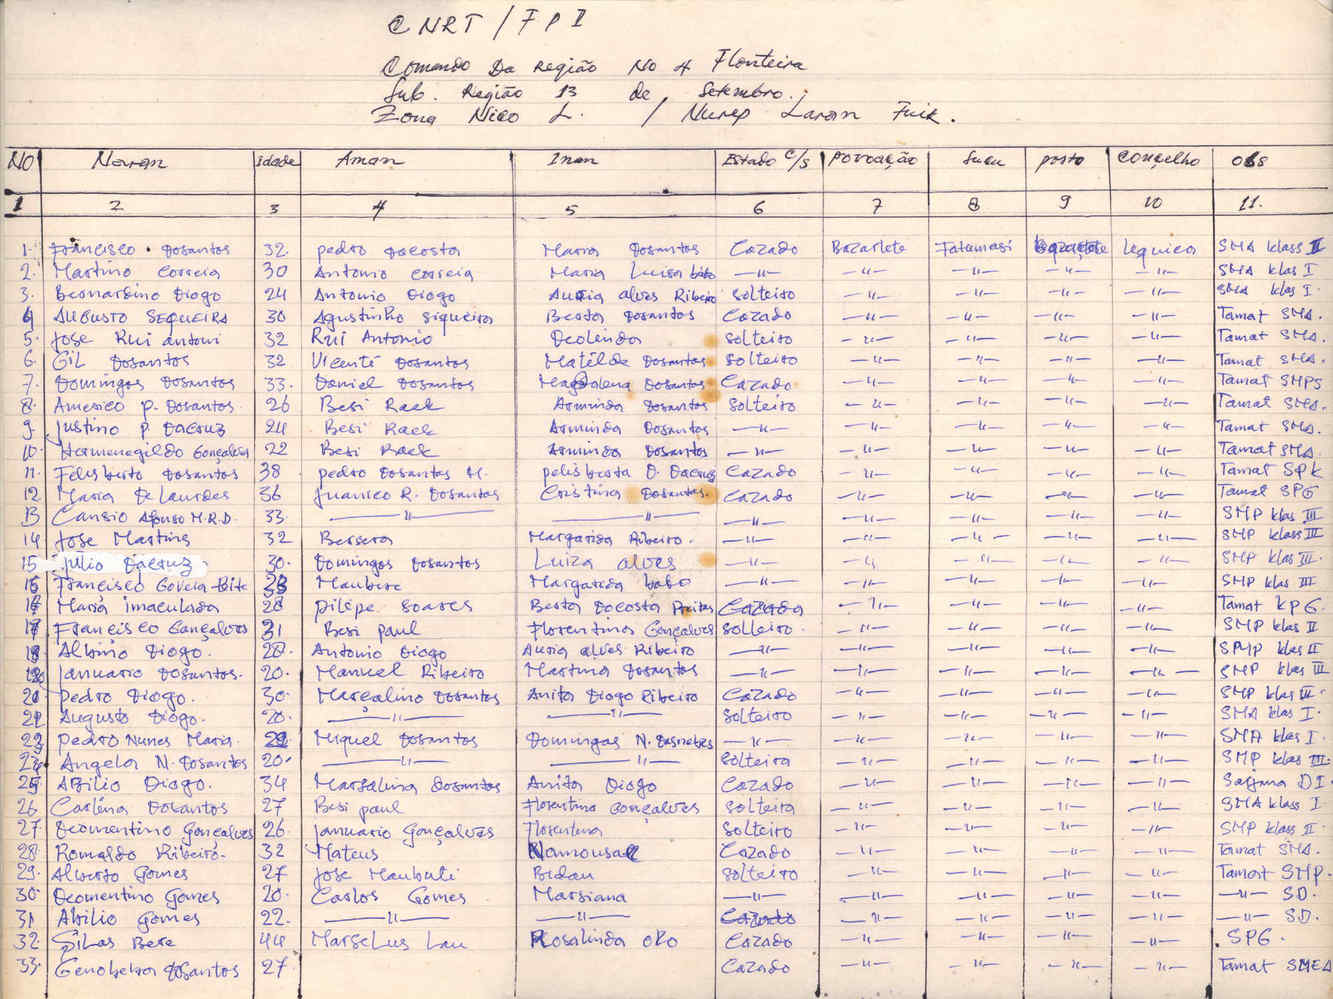 CNRT / FPI
Comando Da Região No 4 Flonteira
Sub. Região 13 de Setembro.
Zona Nico L. / Nurep Laran Fuik.
NO Naran idade Aman Inan Estado C/S povoação Suku posto conçelho obs
1 2 3 4 5 6 7 8 9 10 11.
1. Francisco Dosantos 32 pedro Dacosta Maria Dosantos Cazado Bazartete Fatumasi Bazartete Lequica SMA klass II
2. Martino Correia 30 Antonio Correia Maria Luisa —"— —"— —"— —"— —"— SMA klas I
3. Bernardino Diogo 24 Antonio Diogo Auria alves Ribeiro Solteiro —"— —"— —"— —"— SMA klas I.
4 AUGUSTO SEQUEIRA 30 Agustinho siqueira Berta Dosantos Cazado —"— —"— —"— —"— Tamat SMA.
5. Jose Rui antoni 32 Rui Antonio Deolinda Solteiro —"— —"— —"— —"— Tamat SMA.
6. Gil Dosantos 32 Vicente Dosantos Matelde Dosantos Solteiro —"— —"— —"— —"— Tamat SMA.
7. Domingos Dosantos 33. Daniel Dosantos Magdalena Dosantos Cazado —"— —"— —"— —"— Tamat SMPS
8. Americo p. Dosantos 26 Besi Raek Arminda Dosantos Solteiro —"— —"— —"— —"— Tamat SMA.
9. Justino p. Dacruz 24 Besi Raek Arminda Dosantos —"— —"— —"— —"— —"— Tamat SMA.
10. Hermenegildo Gonçalves 22 Besi Raek Arminda Dosantos —"— —"— —"— —"— —"— Tamat SMA
11. Felisberto Dosantos 38 pedro Dosantos M. pelisberta D. Dacruz Cazado —"— —"— —"— —"— Tamat SPK
12 Maria De Lourdes 36 Juanico R. Dosantos Cristina Dosantos. Cazado —"— —"— —"— —"— Tamat SPG
13 Cansio Afonso M.R.D. 33. —"— —"— —"— —"— —"— —"— —"— SMP klas III
14 Jose Martins 32 Bersera Margarida Ribeiro. —"— —"— —"— —"— —"— SMP klas III
15 Julio Dacruz. 30. Domingos Dosantos Luiza alves —"— —"— —"— —"— —"— SMP klas III.
16 Francisco Govcia Bite 33 Maubere Margarida babo —"— —"— —"— —"— —"— SMP klas III
16 Maria imaculada 28 pilipe soares Berta Docosta Freitas Cazada —"— —"— —"— —"— Tamat KPG.
17 Francisco Gonçalves 31 Besi paul Florentina Gonçalves Solteiro. —"— —"— —"— —"— SMP klas II
18. Albino Diogo. 28. Antonio Diogo Auria alves Ribeiro —"— —"— —"— —"— —"— SMP klas II
Januario Dosantos. 20. Manuel Ribeiro Martina Dosantos —"— —"— —"— —"— —"— SMP klas III
20 Pedro Diogo. 30. Marcalino Dosantos Anita Diogo Ribeiro Cazado —"— —"— —"— —"— SMP klas III.
22 Augusto Diogo. 20. —"— —"— Solteiro —"— —"— —"— —"— SMA klas I.
23 Pedro Nunes Maria. 22 Miquel Dosantos Domingas N. —"— —"— —"— —"— —"— SMA klas I.
24 Angela N. Dosantos 20. —"— —"— Solteira —"— —"— —"— —"— SMP klas III.
25 Abilio Diogo. 34 Marsalina Dosantos Anita Diogo Cazado —"— —"— —"— —"— Sarjana DI
26 Carlina Dosantos 27 Besi paul Florentina Gonçalves Solteira —"— —"— —"— —"— SMA klass I
27. Deomentino Gonçalves 26. Januario Gonçalves Florentina Solteiro —"— —"— —"— —"— SMP klass II
28. Romaldo Ribeiro. 32 Mateus Namousa Cazado —"— —"— —"— —"— Tamat SMA.
29. Alberto Gomes 27 Jose Maubuti Bidau Solteiro —"— —"— —"— —"— Tamat SMP.
30. Deomentino Gomes 20. Carlos Gomes Marsiana —"— —"— —"— —"— —"— —"— SD.
31. Abilio Gomes 22. —"— —"— Cazado —"— —"— —"— —"— —"— SD.
32 Silas Bere 44 Marselus Lau Rosalinda oko Cazado —"— —"— —"— —"— SPG.
33. Genobeba Dosantos 27 Cazado —"— —"— —"— —"— Tamat SMEA